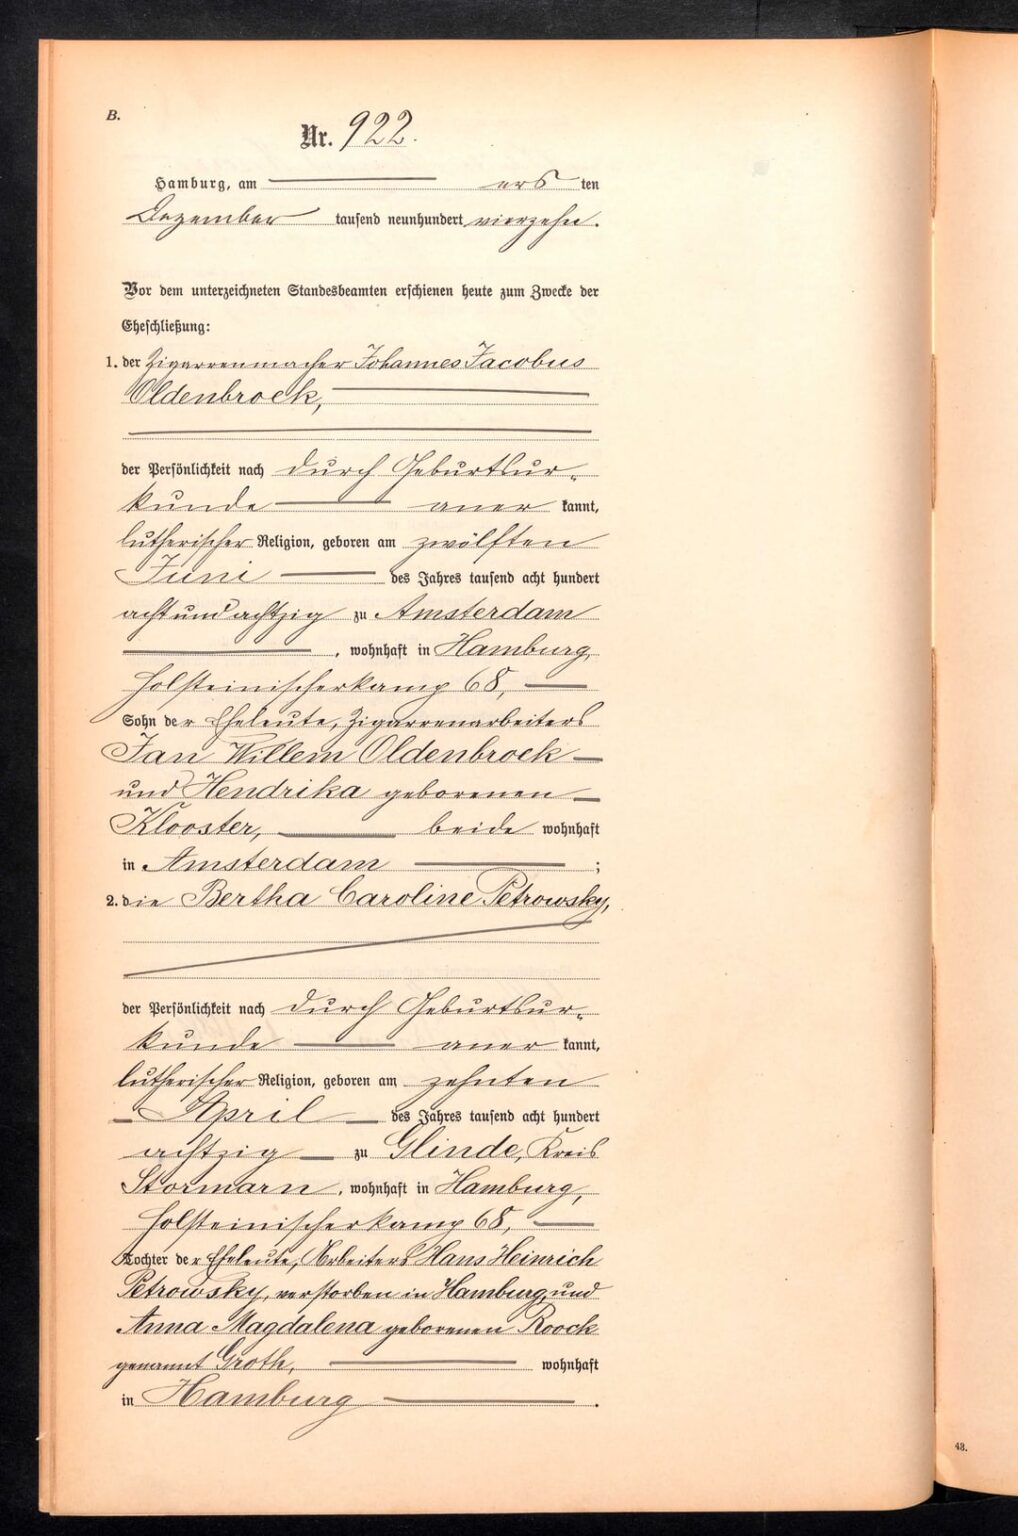 B.
Nr. 922.
Hamburg, am ersten
Dezember tausend neunhundert vierzehn.
Vor dem unterzeichneten Standesbeamten erschienen heute zum Zwecke der
Eheschließung:
1. der Zigarrenmacher Johannes Jacobus
Oldenbroek,
der Persönlichkeit nach durch Geburtsur-
kunde aner kannt,
lutherischer Religion, geboren am zwölften
Juni des Jahres tausend acht hundert
achtundachtzig zu Amsterdam
, wohnhaft in Hamburg,
Holsteinischerkamp 68,
Sohn der Eheleute, Zigarrenarbeiters
Jan Willem Oldenbroek
und Hendrika geborenen
Klooster, beide wohnhaft
in Amsterdam ;
2. die Bertha Caroline Petrowsky,
der Persönlichkeit nach durch Geburtsur-
kunde aner kannt,
lutherischer Religion, geboren am zehnten
April des Jahres tausend acht hundert
achtzig zu Glinde, Kreis
Stormarn, wohnhaft in Hamburg,
Holsteinischerkamp 68,
Tochter der Eheleute, Arbeiters Hans Heinrich
Petrowsky, verstorben in Hamburg, und
Anna Magdalena geborenen Roock
genannt Groth, wohnhaft
in Hamburg .
43.